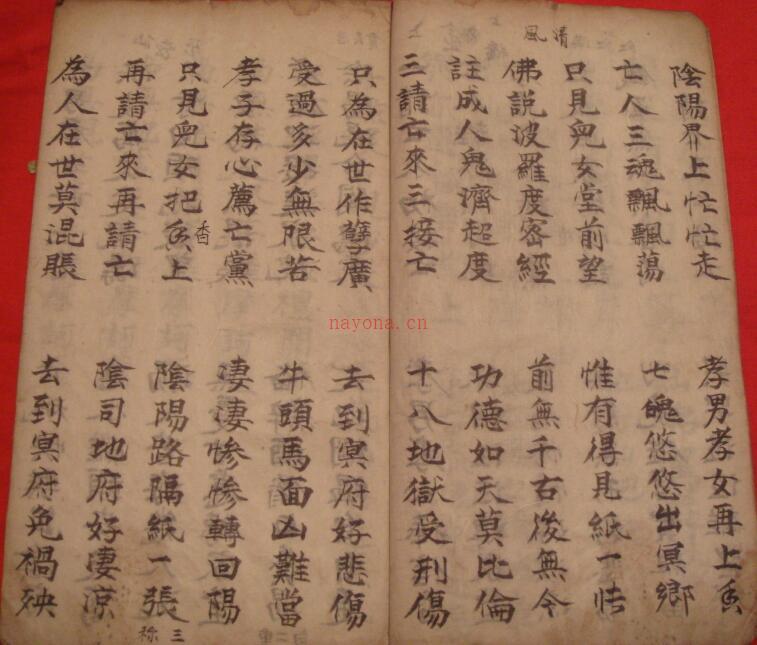 清風
陰陽界上忙忙走 孝男孝女再上香
亡人三魂飄飄蕩 七魄悠悠出冥鄉
只見兒女堂前望 惟有得見紙一
佛說波羅度密經 前無千右後無今
註成人鬼濟超度 功德如天莫比倫
三請亡來三接亡 十八地獄受刑傷
只為在世作孽廣 去到冥府好悲傷
受過多少無限苦 牛頭馬面凶難當
孝子存心薦亡黨 淒淒慘慘轉回陽
只見兒女把香上 陰陽路隔紙一張
再請亡來再請亡 陰司地府好淒涼
為人在世莫混賬 去到冥府免禍殃
三祢
nayona.cn